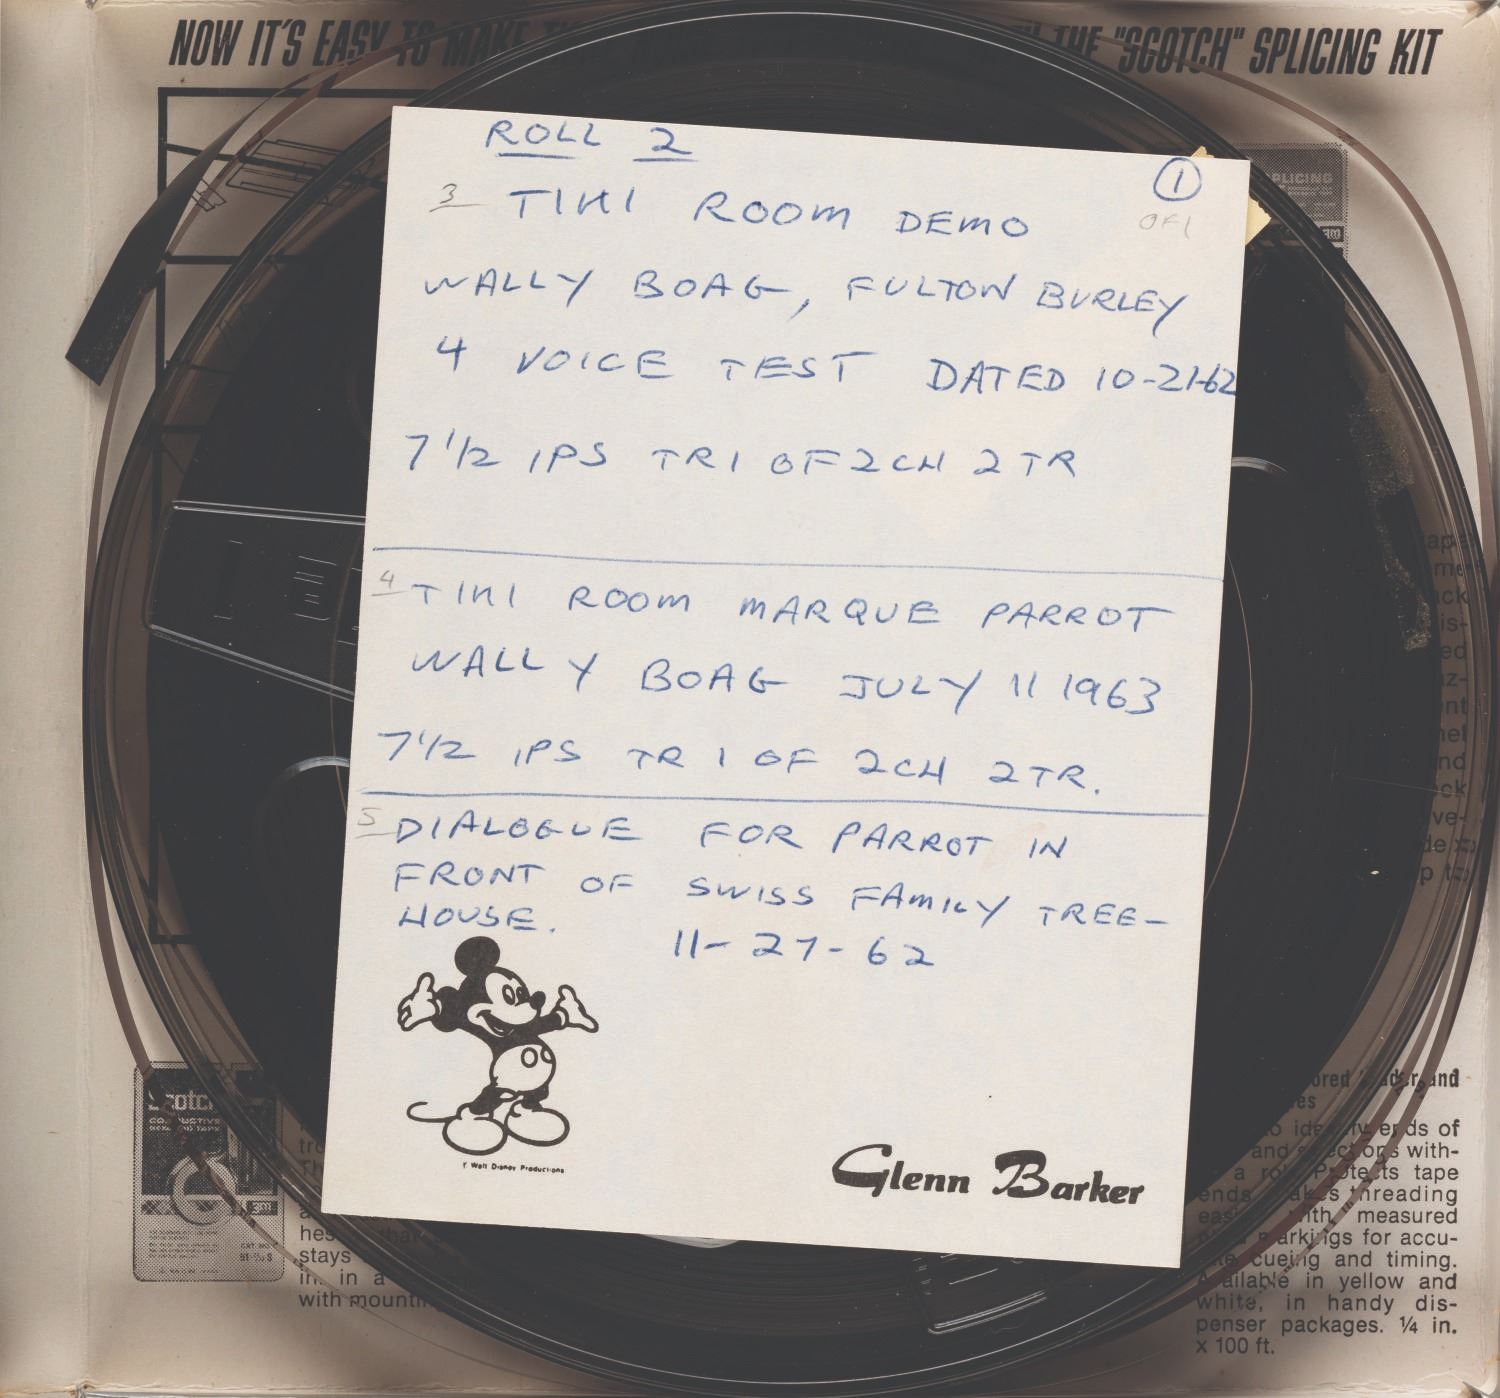 NOW IT'S EASY TO MAKE THE "SCOTCH" SPLICING KIT
ROLL 2
1
OF 1
3 TIKI ROOM DEMO
WALLY BOAG, FULTON BURLEY
4 VOICE TEST DATED 10-21-62
7 1/2 IPS TR1 OF 2CH 2TR
4 TIKI ROOM MARQUE PARROT
WALLY BOAG JULY 11 1963
7 1/2 IPS TR 1 OF 2CH 2TR.
5 DIALOGUE FOR PARROT IN
FRONT OF SWISS FAMILY TREE-
HOUSE.
11-27-62
Walt Disney Productions
Glenn Barker
SPLICING
3M
Scotch
3M
stays
in a
with
and
identify ends of
and with-
a Protects tape
ends. threading
with measured
markings for accu-
cueing and timing.
Available in yellow and
white, in handy dis-
penser packages. ¼ in.
x 100 ft.